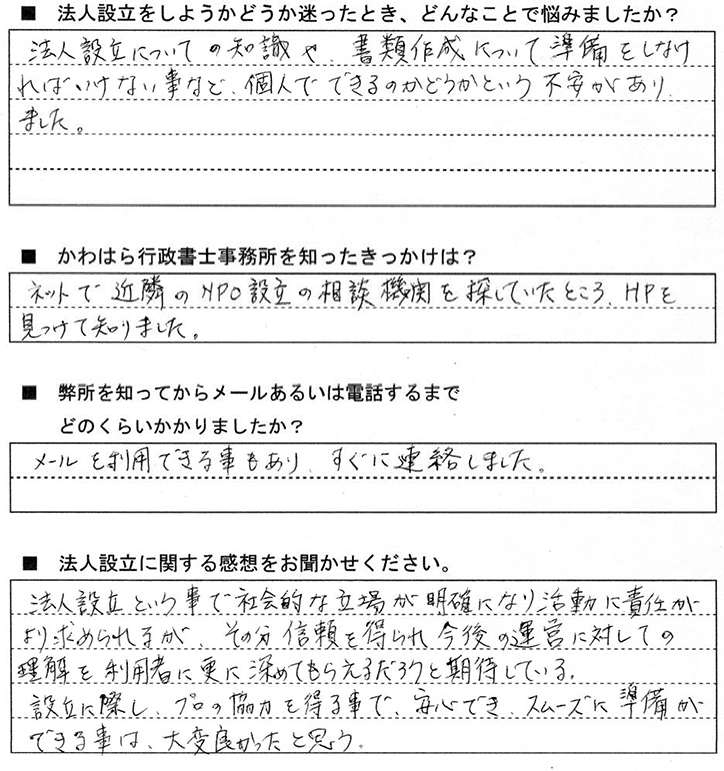 ■ 法人設立をしようかどうか迷ったとき、どんなことで悩みましたか?
法人設立についての知識や、書類作成について準備をしなけ
ればいけない事など、個人でできるのかどうかという不安があり
ました。
■ かわはら行政書士事務所を知ったきっかけは?
ネットで近隣のNPO設立の相談機関を探していたところ、HPを
見つけて知りました。
■ 弊所を知ってからメールあるいは電話するまで
どのくらいかかりましたか?
メールを利用できる事もあり、すぐに連絡しました。
■ 法人設立に関する感想をお聞かせください。
法人設立という事で社会的な立場が明確になり活動に責任が
より求められるが、その分信頼を得られ今後の運営に対しての
理解を利用者に更に深めてもらえるだろうと期待している。
設立に際し、プロの協力を得る事で、安心でき、スムーズに準備が
できる事は、大変良かったと思う。